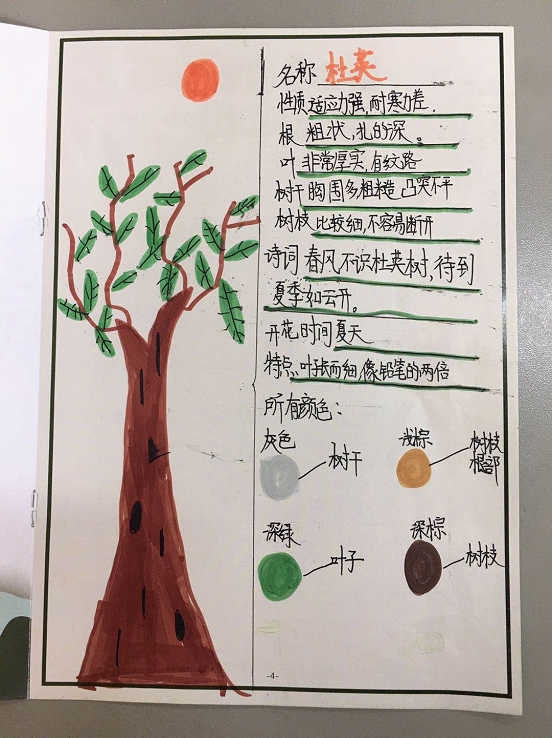 名称 杜英
性质 适应力强,耐寒力差.
根 粗状,扎的深。
叶 非常厚实,有纹路
树干 胸围多粗糙 凸突不平
树枝 比较细,不容易断开
诗词 春风不识杜英树,待到
夏季如云开。
开花时间 夏天
特点 叶长而细 像铅笔的两倍
所有颜色:
灰色 浅棕
树干 树枝
根部
深绿 深棕
叶子 树枝
-4-